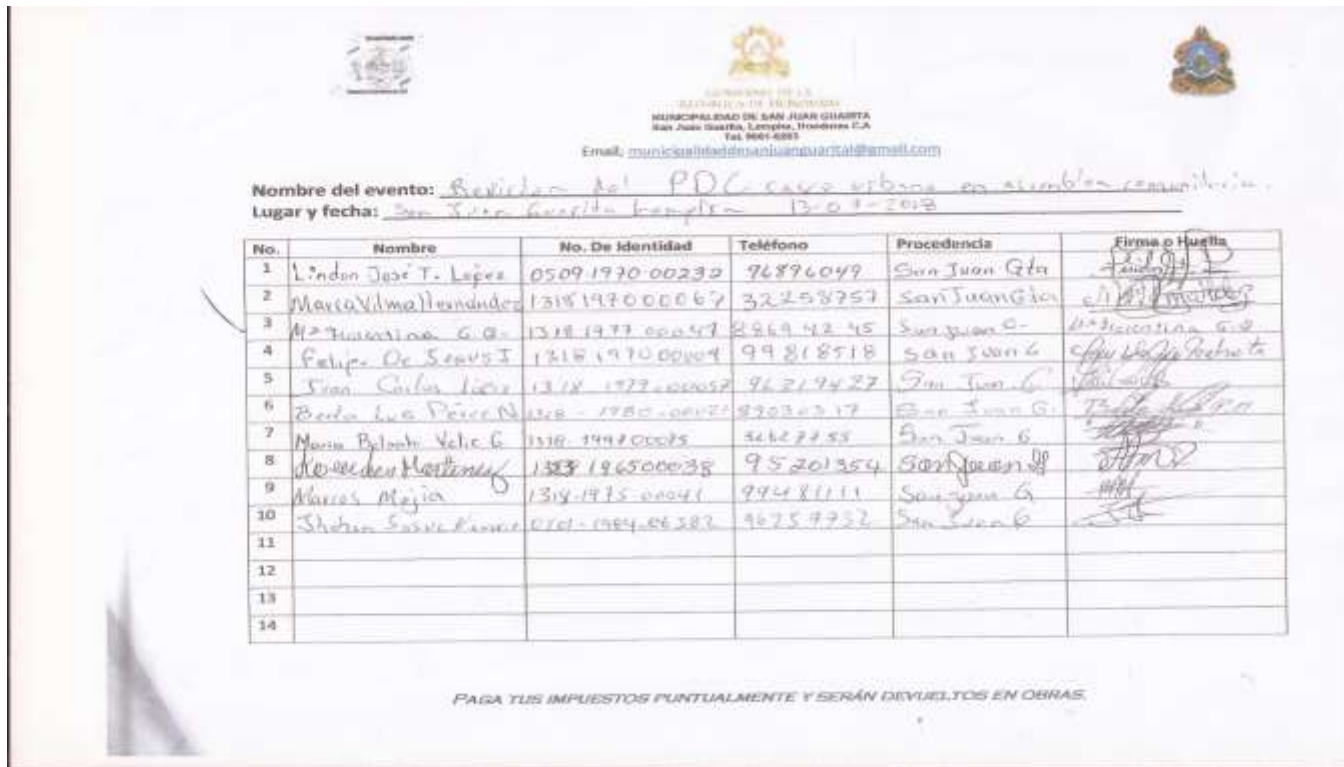 GOBIERNO DE LA
REPÚBLICA DE HONDURAS
MUNICIPALIDAD DE SAN JUAN GUARITA
San Juan Guarita, Lempira, Honduras C.A
Email; municipalidaddesanjuanguarita1@gmail.com
Nombre del evento: Revicion del PDC casco urbano en asamblea comunitaria.
Lugar y fecha: San Juan Guarita Lempira 13-07-2018
No. Nombre No. De Identidad Teléfono Procedencia Firma o Huella
1 Lindon José T. López 0509 1970 00232 96896049 San Juan Gta
2 Maria Vilma Hernandez 1318197000067 32258757 San Juan Gta
3 Mª G.O. 1318 1977 00047 8869 42 45 San Juan G. G.O
4 Felipe De Jesus T 1318 1970 00009 99818518 San Juan G
5 Juan Carlos López 1318 1979-00057 96219427 San Juan G
6 Berta Luz Pérez N 1318 - 1980-00021 89030317 San Juan G.
7 Maria G 1318 San Juan G
8 Martinez 196500038 95201354 San Juan G
9 Marcos Mejia 1318-1975-00041 99481111 San Juan G
10 96259752 San Juan G
11
12
13
14
PAGA TUS IMPUESTOS PUNTUALMENTE Y SERÁN DEVUELTOS EN OBRAS.